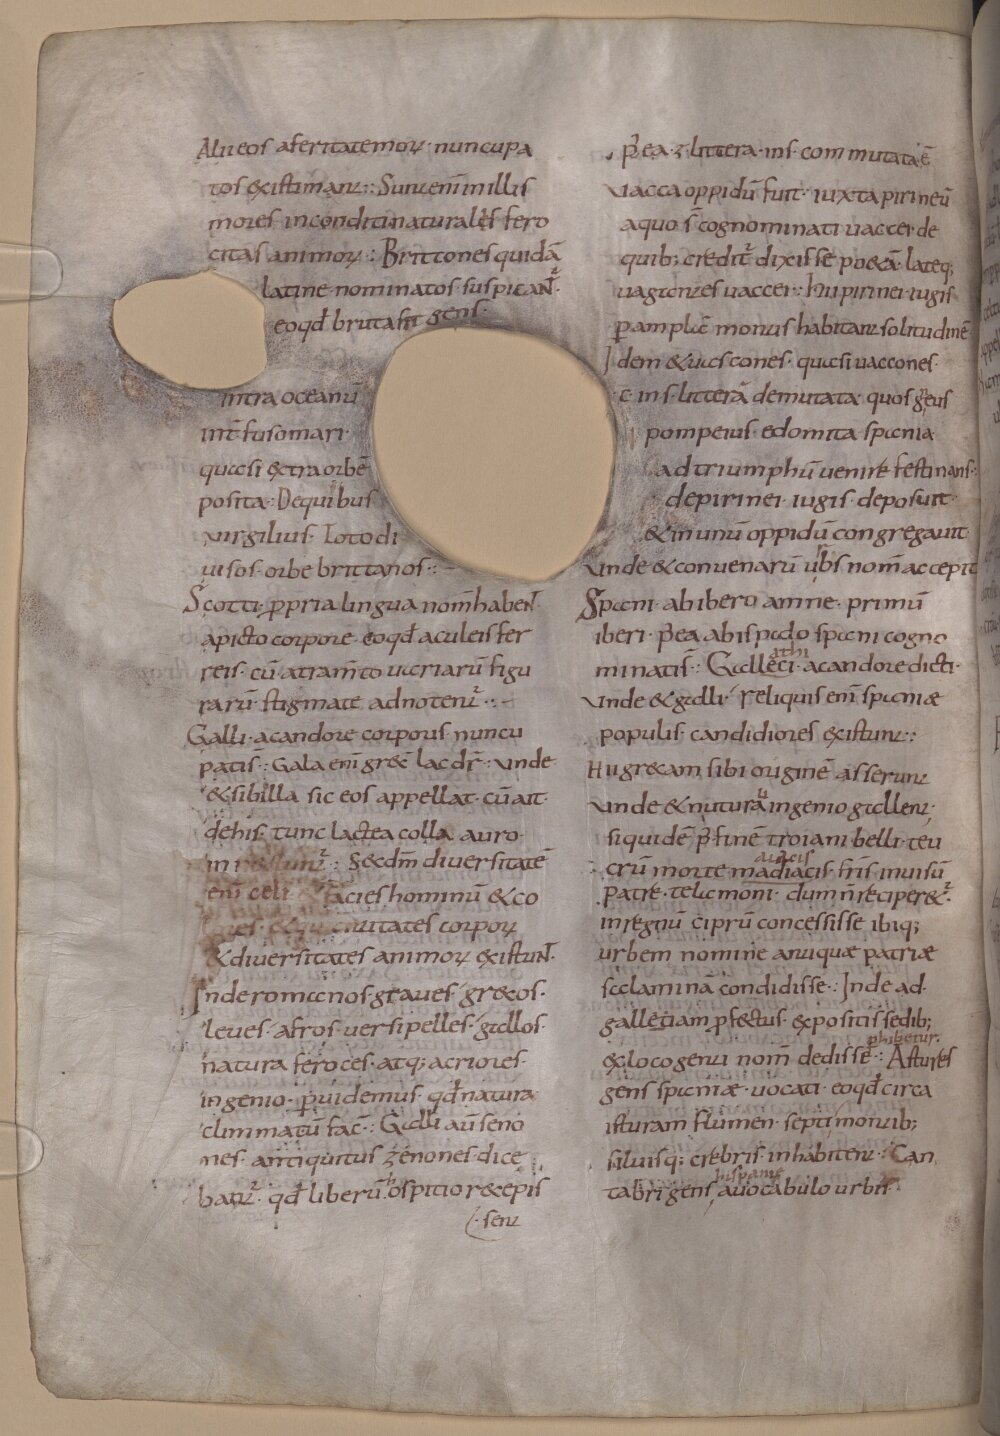 Alii eos aferitatemoꝝ nuncupa
tos existimant:· Sunt enim illis
mores inconditi naturales fero
citas animoꝝ:· Brittones quidā
latine nominatos suspicant᷑·
eoqđ bruta sit gens·
intra oceanū
int̄fuso mari·
quasi extra orbē
posita· De quibus
virgilius· Toto di
uisos· orbe brittanos·:·
Scotti· ꝓpria lingua nom̄ habent᷑·
apicto corpore· eoqđ aculeis fer
reis· cū atram̄to uariarū figu
rarū stigmate adnotent᷑·:·
Galli· acandore corporis nuncu
patiš·: Gala eni grec̄ lac dr̄·: unde
& sibilla sic eos appellat· cū ait·
dehis· tunc lactea colla auro·
Sedm diuersitatē
enī celi & facies hominū & co
lores & qualitates corpoꝝ
& diuersitates animoꝝ existunt᷑·
Inde romanos graues· grecos·
leues· afros· versipelles· gallos·
natura feroces· atq; acriores·
ingenio· ꝑuidemus· qđ natura
climmatū fac̄·: Galli aū seno
nes· antiquitus zenones dice
bant᷑· qđ liberū hospitio recepis
sent
p̄ea· z· littera· ins· commutata ē
Vacca oppidū fuit· iuxta pirineū
aquo s̄ cognominati uaccei· de
quib; credit᷑ dixisse poeta lateq;
uagantes uaccei· Hii pirinei iugis
p̄ amplā montis habitant solitudinē
Idem & uascones· quasi uaccones·
c· ins· litterā demutata· quos gneus
pompeius· edomita spania
ad triumphū venire festinans·
de pirinei iugis deposuit·
& in unū oppidū congregauit·
Vnde & conuenarū urbs nom̄ accepit
Spani· ab ibero amne· primū
iberi· p̄ea ab ispalo spani cogno
minatiš·: Galleci· acandore dicti·
athi
Vnde & galli· reliquis enī spaniæ
populis· candidiores existunt·:
Hii grecam sibi originē asserunt
Vnde & natura ingenio gallent·
siquidē p̄ finē troiani belli· teu
crū morte madiacis· fris inuisū
aiacis
patre· telamoni· dum n̄ reciperet᷑·
in regnū ciprū concessisse ibiq;
urbem nomine antiquæ patriæ
salaminā condidisse·: Inde ad·
galleciam ꝓfectus· expositis sedib;
phibetur·
ex loco genti nom̄ dedisse·: Astures
gens spaniæ· uocati· eoqđ circa
isturam flumen· septi montib;
siluisq; crebris inhabitent·: Can
hispanie
tabri gens auocabulo urbis·